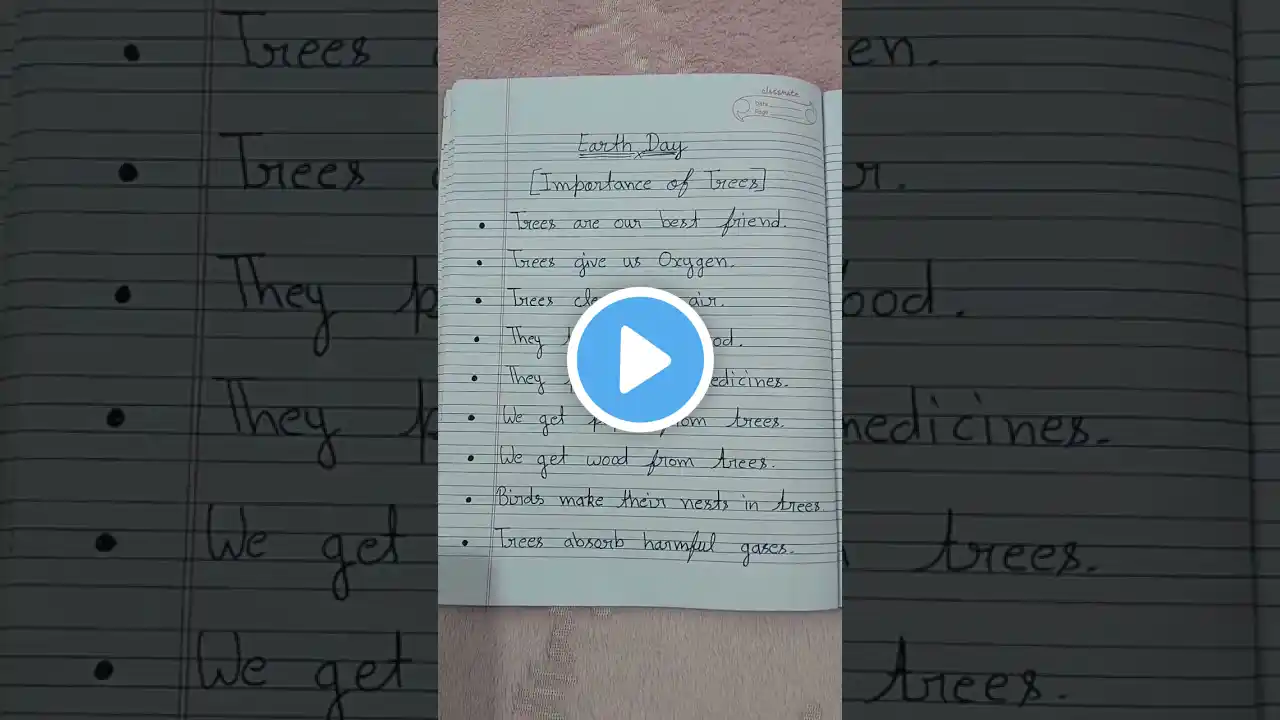 classmate
Date
Page
Earth Day
[Importance of Trees]
• Trees are our best friend.
• Trees give us Oxygen.
• Trees air.
• They
• They medicines.
• We get from trees.
• We get wood from trees.
• Birds make their nests in trees
• Trees absorb harmful gases.